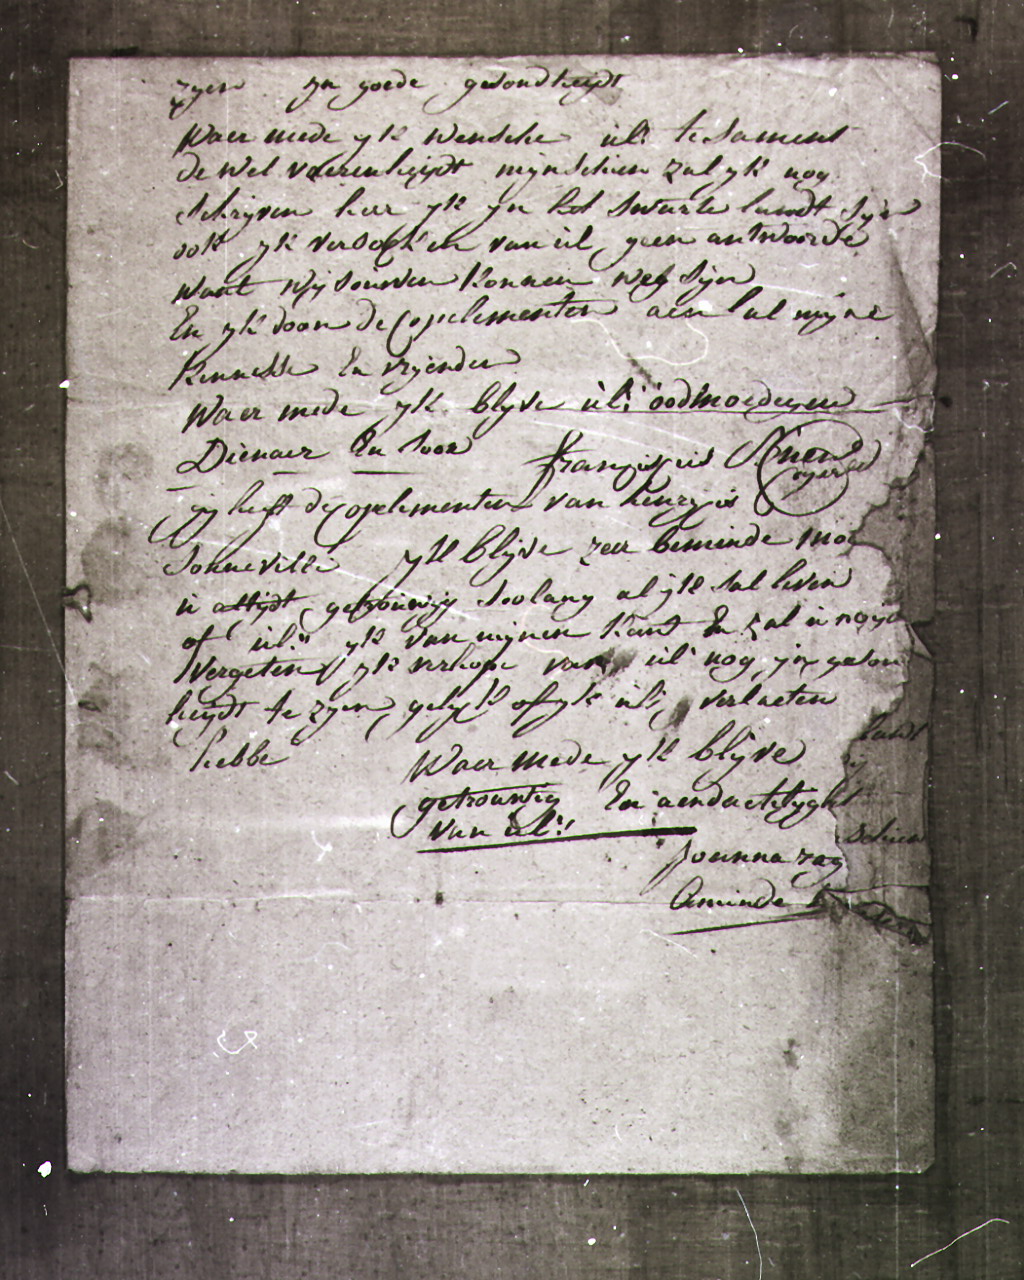 zyen yn goede gesondheyt
Waer mede yk wensche ul: te saement
de wel vaerenheydt mynschien zal yk nog
schryven heer yk yn het swarte landt
ook yk versock en van ul geen antwoorde
want wy souwen konnen weg syn
En yk doon de copelementen aen al myne
kennesse En vrienden
Waer mede yk blyve ul: oodmoedigen
Dienaer En soon françisçüs
gy heft de copelementen van
Sonneville yk blyve zeer beminde moe
u altydt getrouwig soolang al yk sal leven
of ul: yk van mynen kant En zal u noyd
vergeten yk verhope van ul nog yn geson
heydt te zyen gelyk of yk ul: verlaeten
hebbe
Waer mede yk blyve
getrouwig En aendachtyght
van ul:
Joanna
Beminde